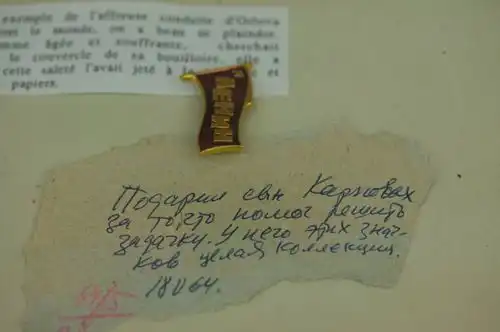 exemple de l'affreuse conduite d'Octova
le monde, on a beau se plaindre.
âgée et souffrante, cherchait
le couvercle de sa bouilloire, elle a
cette saleté l'avait jeté à
papiers.
ЛЕНИН
Подарил сын Карповых
за то, что помог решить
задачку. У него этих знач-
ков целая коллекция.
18 V 64.